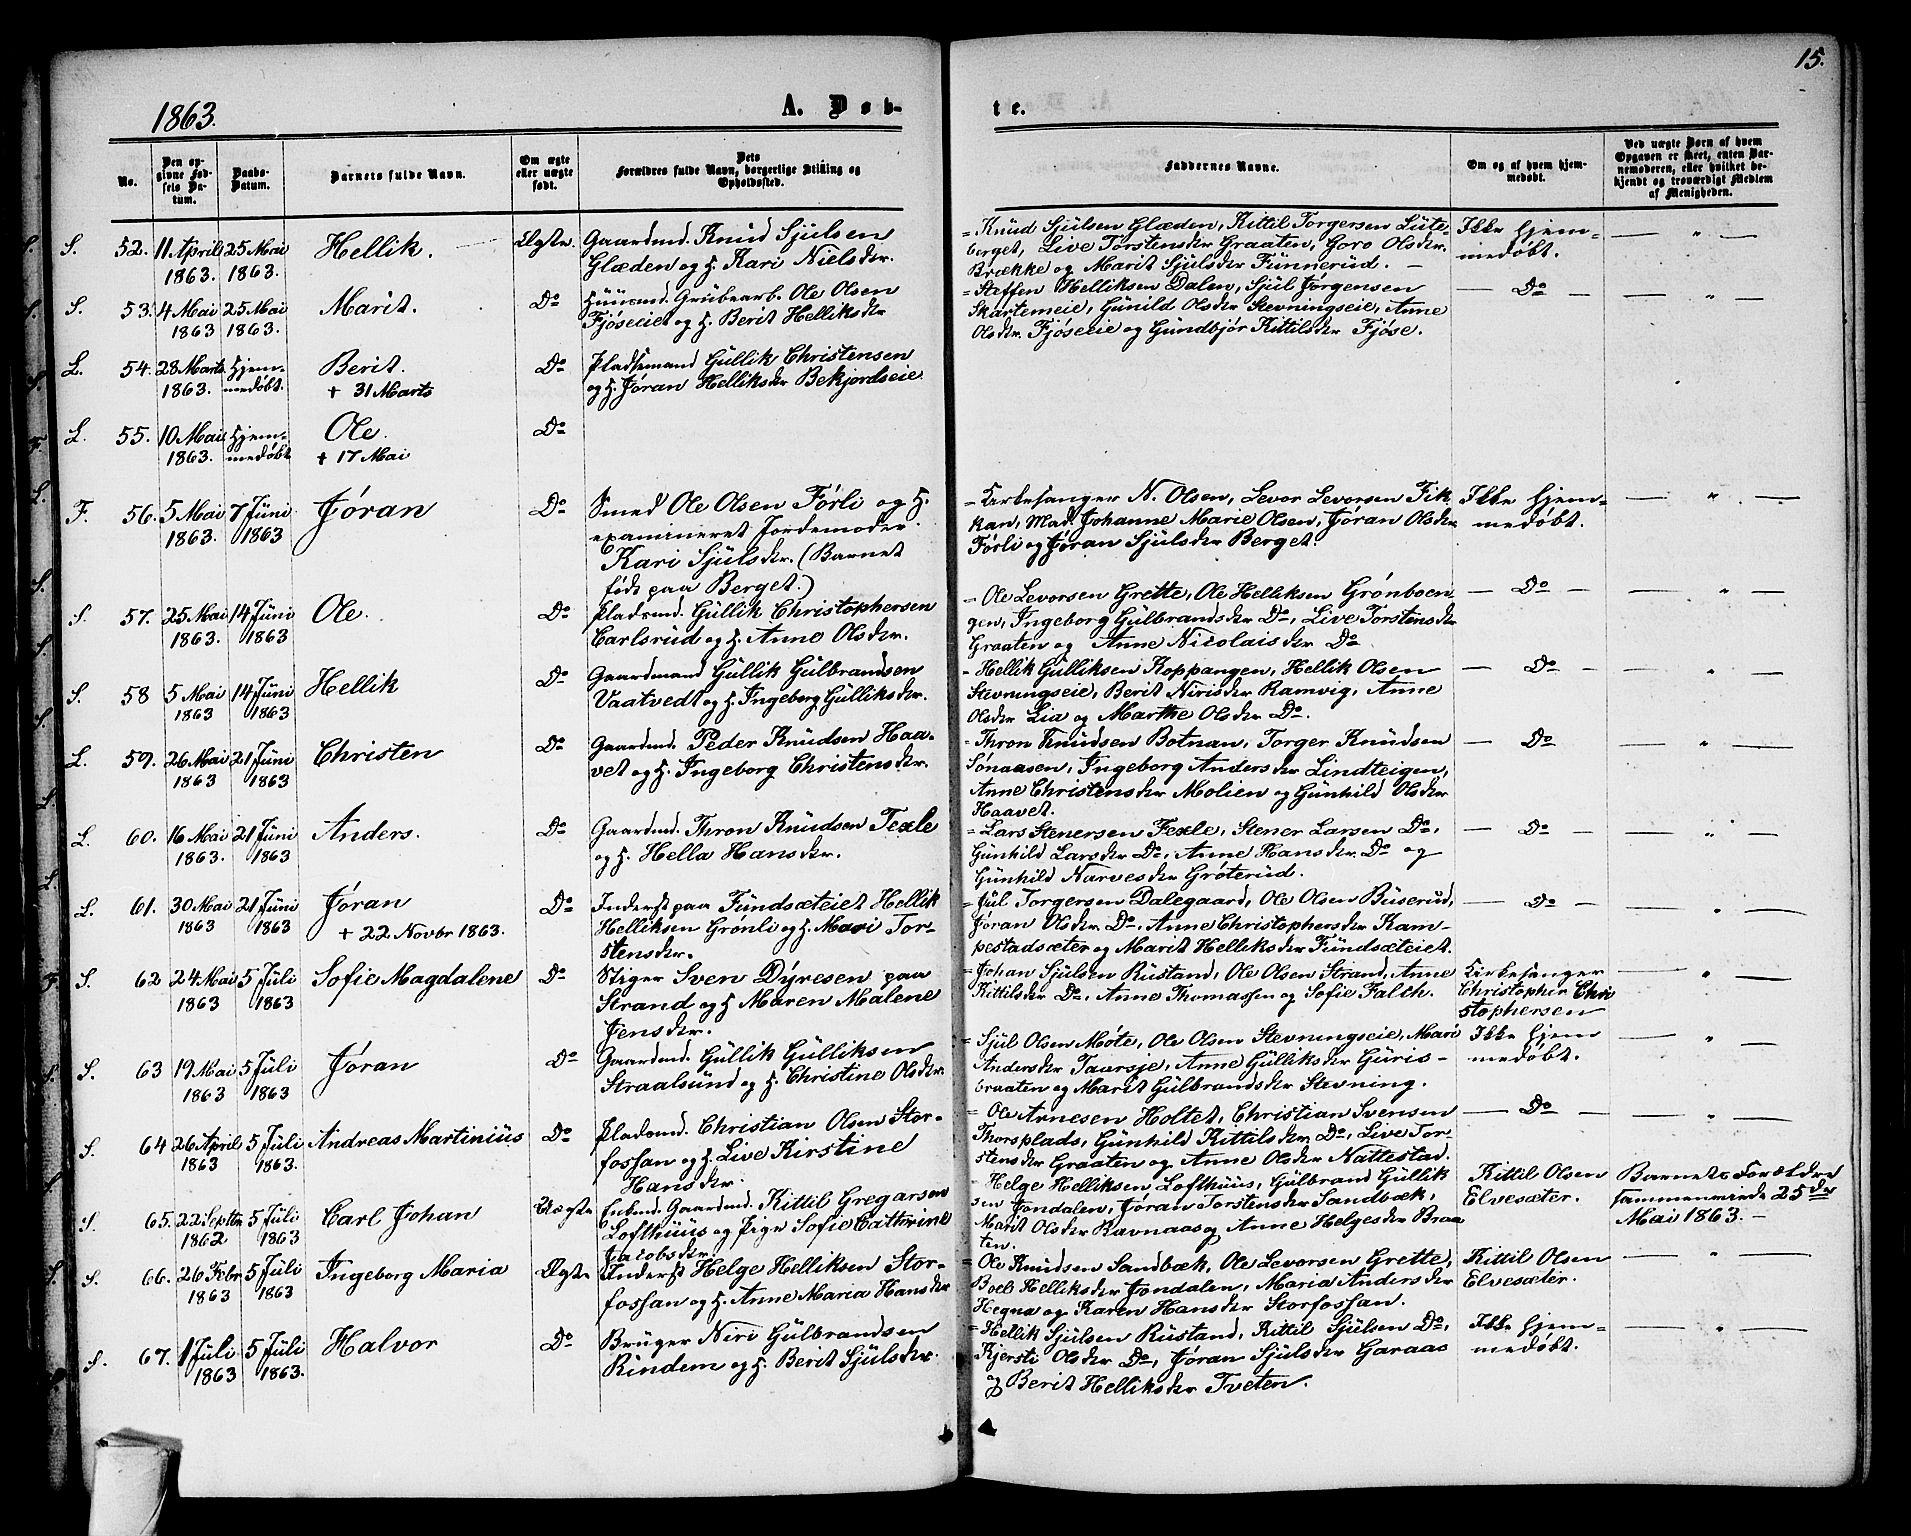 15.
1863.
A. Døb-
te.
No.
Den op-
givne Fød-
sels Da-
tum.
Daabs-
Datum.
Barnets fulde Navn.
Om ægte
eller uægte
født.
Dets
Forældres fulde Navn, borgerlige Stilling og
Opholdssted.
Faddernes Navne.
Om og af hvem hjem-
medøbt.
Ved uægte Børn af hvem
Opgaven er skeet, enten Bar-
nemoderen, eller hvilket be-
kjendt og troværdigt Medlem
af Menigheden.
S. 52. 11 April 1863. 25 Mai 1863. Hellik. Ægte
Gaardmd. Knud Sjulsen
Glæden og H. Kari Nielsdr.
= Knud Sjulsen Glæden, Kittil Torgersen Lüte-
berget, Live Torstensdr Graaten, Goro Olsdr.
Brække og Marit Sjulsdr Funnerud. —
Ikke hjem-
medøbt.
— " —
S. 53. 4 Mai 1863 25 Mai 1863. Marit. Do
Huusmd. Grubearb. Ole Olsen
Fjøseeiet og H. Berit Helliksdr
= Steffen Helliksen Dalen, Sjul Jørgensen
Skartemeie, Gunild Olsdr Stevningseie, Anne
Olsdr. Fjøseeie og Gundbjør Kittilsdr Fjøse.
— Do —
— " —
L. 54. 28 Marts 1863. Hjem-
medøbt. Berit.
+ 31 Marts
Do
Pladsemand Gullik Christensen
og H. Jøran Helliksdr Bekjordseie
L. 55. 10 Mai 1863. Hjem-
medøbt Ole.
+ 17 Mai
Do
F. 56. 5 Mai 1863. 7 Juni 1863 Jøran Do
Smed Ole Olsen Førli og H.
examineret Jordemoder
Kari Sjulsdr. (Barnet
født paa Berget.)
= Kirkesanger N. Olsen, Levor Levorsen Fik
kan, Mad. Johanne Marie Olsen, Jøran Olsdr
Førli og Jøran Sjulsdr Berget.
Ikke hjem-
medøbt.
— " —
S. 57. 25 Mai 1863. 14 Juni 1863 Ole. Do
Pladsmd. Gullik Christophersen
Carlsrud og H. Anne Olsdr.
= Ole Levorsen Grette, Ole Helliksen Grønboen
gen, Ingeborg Gulbrandsdr Do, Live Torstensdr
Graaten og Anne Nicolaisdr Do
— Do —
— " —
S. 58 5 Mai 1863 14 Juni 1863 Hellik Do
Gaardmand Gullik Gulbrandsen
Vaatvedt og H. Ingeborg Gulliksdr.
= Hellik Gulliksen Koppangen, Hellik Olsen
Stevningseie, Berit Nirisdr Ramvig, Anne
Olsdr Lia og Marthe Olsdr Do.
— Do —
— " —
L. 59. 26 Mai 1863 21 Juni 1863 Christen Do
Gaardmd. Peder Knudsen Haa-
vet og H. Ingeborg Christensdr.
= Thron Knudsen Botnan, Torger Knudsen
Sønaasen, Ingeborg Andersdr Lindteigen,
Anne Christensdr Molien og Gunhild Olsdr
Haavet.
— Do —
— " —
L. 60. 16 Mai 1863. 21 Juni 1863 Anders. Do
Gaardmd. Thron Knudsen Texle
og H. Hella Hansdr.
= Lars Stenersen Texle, Stener Larsen Do,
Gunhild Larsdr Do, Anne Hansdr. Do og
Gunhild Narvesdr Grøterud.
— Do —
— " —
L. 61. 30 Mai 1863 21 Juni 1863 Jøran
+ 22 Novbr 1863.
Do
Inderst paa Fundsæteiet Hellik
Helliksen Grønli og H. Mari Tor-
stensdr.
= Jul Torgersen Dalegaard, Ole Olsen Buserud,
Jøran Olsdr. Do, Anne Christophersdr Kam-
pestadsæter og Marit Helliksdr Fundsæteiet.
— Do —
— " —
S. 62 24 Mai 1863 5 Juli 1863 Sofie Magdalene Do
Stiger Sven Dyresen paa
Strand og H. Maren Malene
Jensdr.
= Johan Sjulsen Rustand, Ole Olsen Strand, Anne
Kittilsdr Do, Anne Thomassen og Sofie Falch.
Kirkesanger
Christopher Chri
stophersen
— " —
S. 63 19 Mai 1863 5 Juli 1863 Jøran Do
Gaardmd. Gullik Gulliksen
Straalsund og H. Christine Olsdr.
= Sjul Olsen Møte, Ole Olsen Stevningseie, Mari
Andersdr Taarsje, Anne Gulliksdr Guris-
braaten og Marit Gulbrandsdr Stevning.
Ikke hjem
medøbt.
— " —
S. 64 26 April 1863 5 Juli 1863. Andreas Martinius Do
Pladsmd. Christian Olsen Stor-
fossan og H. Live Kirstine
Hansdr.
= Ole Arnesen Holtet, Christian Svensen
Thorsplads, Gunhild Kittilsdr. Do, Live Tor-
stensdr Graaten og Anne Olsdr Nattestad.
— Do —
— " —
S. 65. 22 Septbr 1862 5 Juli 1863 Carl Johan Uægte
Enkemd. Gaardmd. Kittil Gregarsen
Lofthuus og Pige Sofie Cathrine
Jacobsdr.
= Helge Helliksen Lofthuus, Gulbrand Gullik
sen Jondalen, Jøran Torstensdr Sandbæk,
Marit Olsdr Ravnaas og Anne Helgesdr Braa
ten.
Kittil Olsen
Elvesæter.
Barnets Forældre
sammenviede 25de
Mai 1863. —
S. 66. 26 Febr 1863 5 Juli 1863. Ingeborg Maria Ægte
Inderst Helge Helliksen Stor-
fossan og H. Anne Maria Hansdr
= Ole Knudsen Sandbæk, Ole Levorsen Grette,
Boel Helliksdr Jondalen, Maria Andersdr
Hegna og Karen Hansdr Storfossan.
Kittil Olsen
Elvesæter.
— " —
S. 67. 1 Juli 1863 5 Juli 1863. Halvor Do
Bruger Niri Gulbrandsen
Rindem og H. Berit Sjulsdr.
= Hellik Sjulsen Rustand, Kittil Sjulsen Do,
Kjersti Olsdr Do, Jøran Sjulsdr Garaas
og Berit Helliksdr Tveten.
Ikke hjem-
medøbt.
— " —